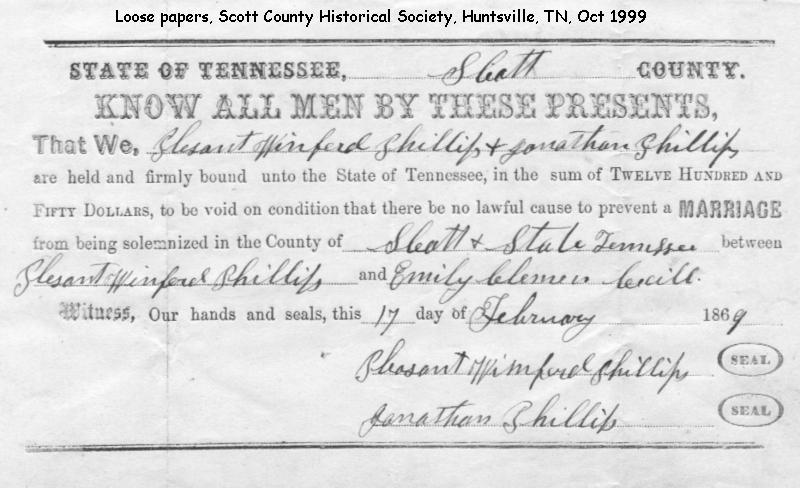 Loose papers, Scott County Historical Society, Huntsville, TN, Oct 1999
STATE OF TENNESSEE, Scott COUNTY.
KNOW ALL MEN BY THESE PRESENTS,
That We, Plesant Winferd Phillips & Jonathan Phillips
are held and firmly bound unto the State of Tennessee, in the sum of TWELVE HUNDRED AND
FIFTY DOLLARS, to be void on condition that there be no lawful cause to prevent a MARRIAGE
from being solemnized in the County of Scott & State Tennessee between
Plesant Winford Phillips and Emily Clemen Cecill.
Witness, Our hands and seals, this 17 day of February 1869
Pleasant Wimferd Phillips SEAL
Jonathan Phillips SEAL